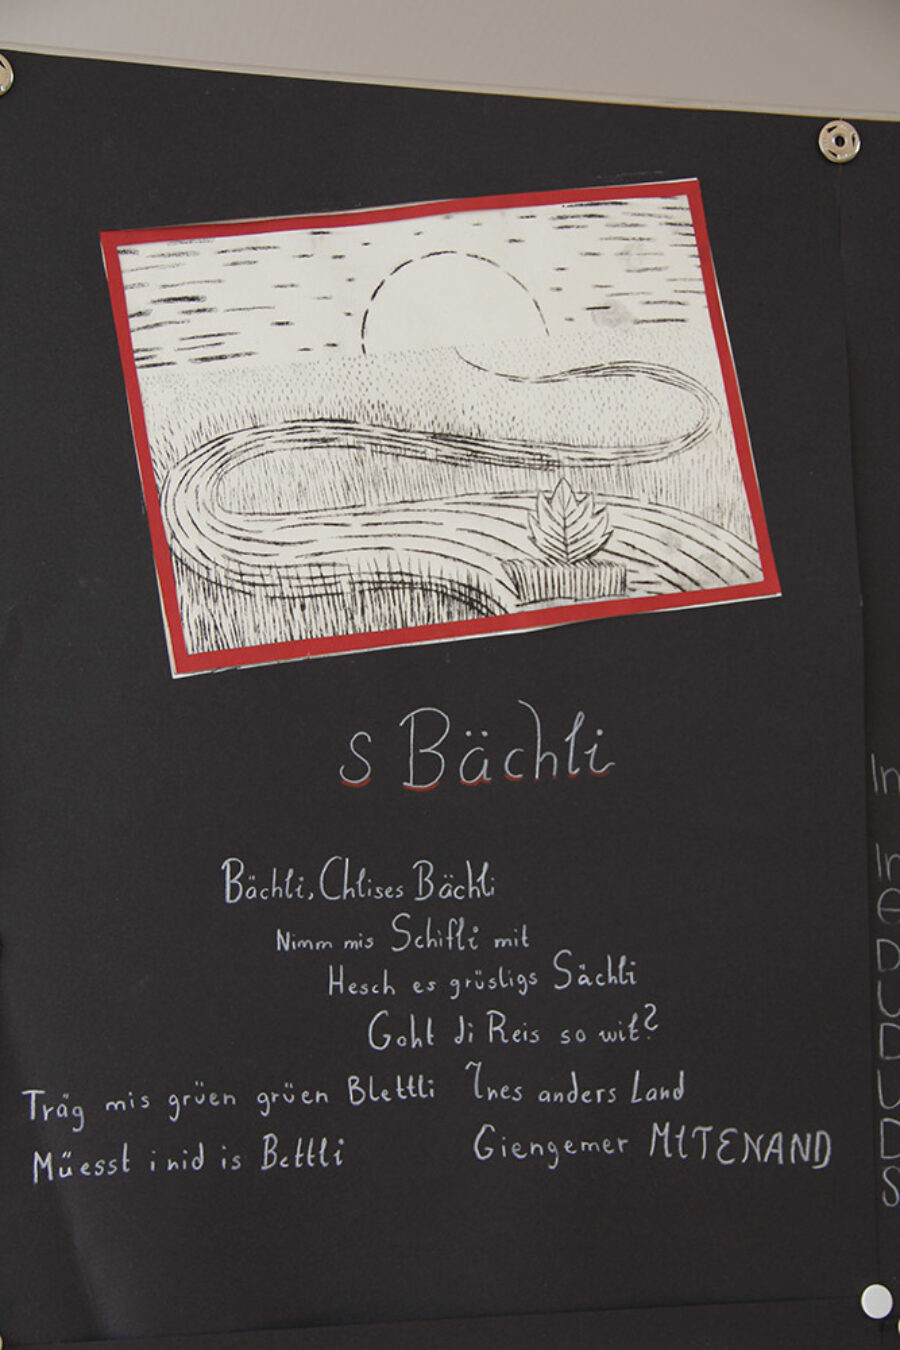 s Bächli
Bächli, Chlises Bächli
Nimm mis Schifli mit
Hesch es grüsligs Sächli
Goht di Reis so wit?
Träg mis grüen grüen Blettli Ines anders Land
Müesst i nid is Bettli Giengemer MITENAND
In
In
e
D
U
D
U
D
S